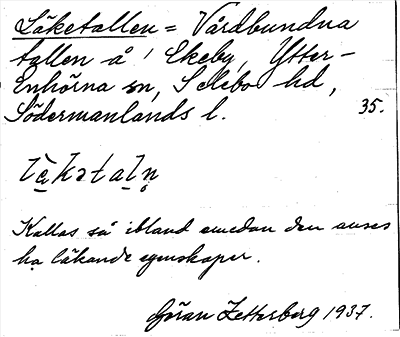 Läketallen = Vårdbundna
tallen å Ekeby, Ytter-
Enhörna sn, Selebo hd,
Södermanlands l. 35.
lɛ̀kətaln̥
Kallas så ibland emedan den anses
ha läkande egenskaper.
Göran Zetterberg 1937.